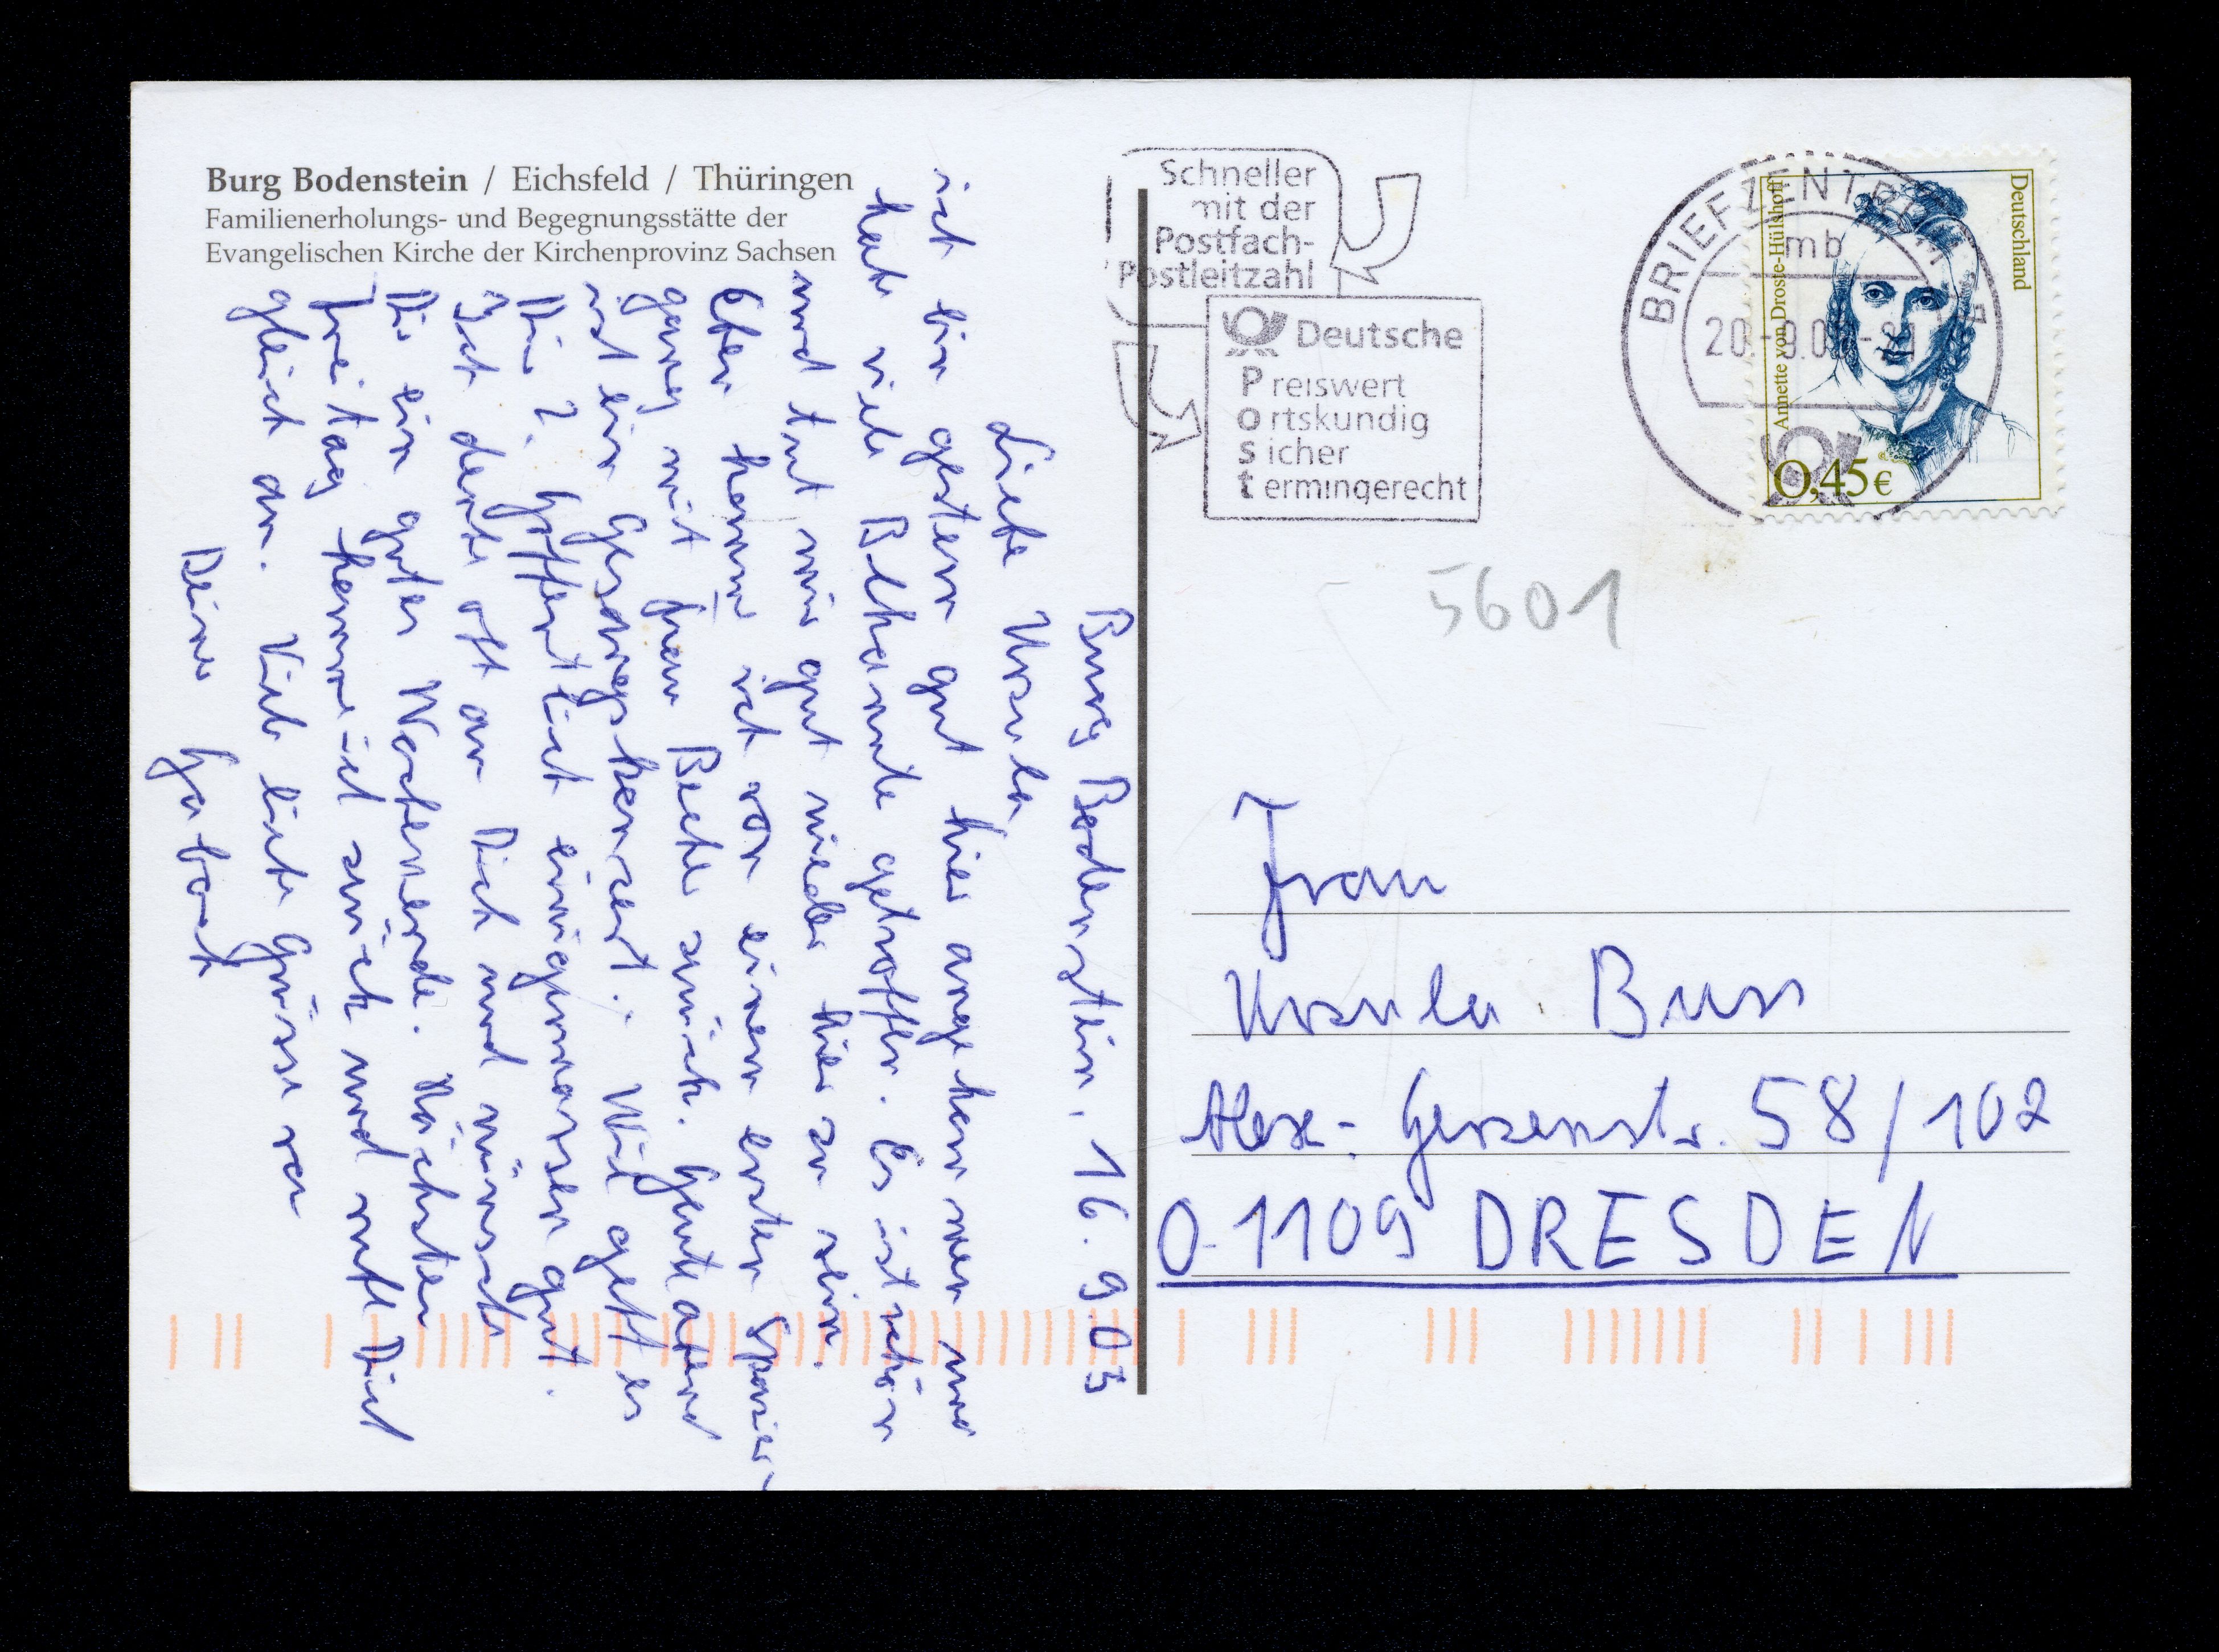 Burg Bodenstein / Eichsfeld / Thüringen
Familienerholungs- und Begegnungsstätte der
Evangelischen Kirche der Kirchenprovinz Sachsen
Burg Bodenstein, 16.9.03
Liebe Ursula,
ich bin gestern gut hier angekommen und
habe viele Bekannte getroffen. Es ist schön
und tut mir gut wieder hier zu sein.
Eben komme ich von einem ersten Spazier-
gang mit Frau zurück. Heute abend
ist ein Gesangskonzert. Wie geht es
Dir? Hoffentlich einigermassen gut.
Ich denke oft an Dich und wünsche
Dir ein gutes Wochenende. Nächsten
Freitag komme ich zurück und rufe Dich
gleich an. Viele liebe Grüsse von
Deiner
Schneller
mit der
Postfach-
Postleitzahl
Deutsche
Preiswert
ortskundig
sicher
termingerecht
BRIEFZENTRUM
mb
Deutschland
Annette von Droste-Hülshoff
0,45€
5601
Frau
Ursula Buss
Alex.-Herzenstr. 58/102
O-1109 DRESDEN